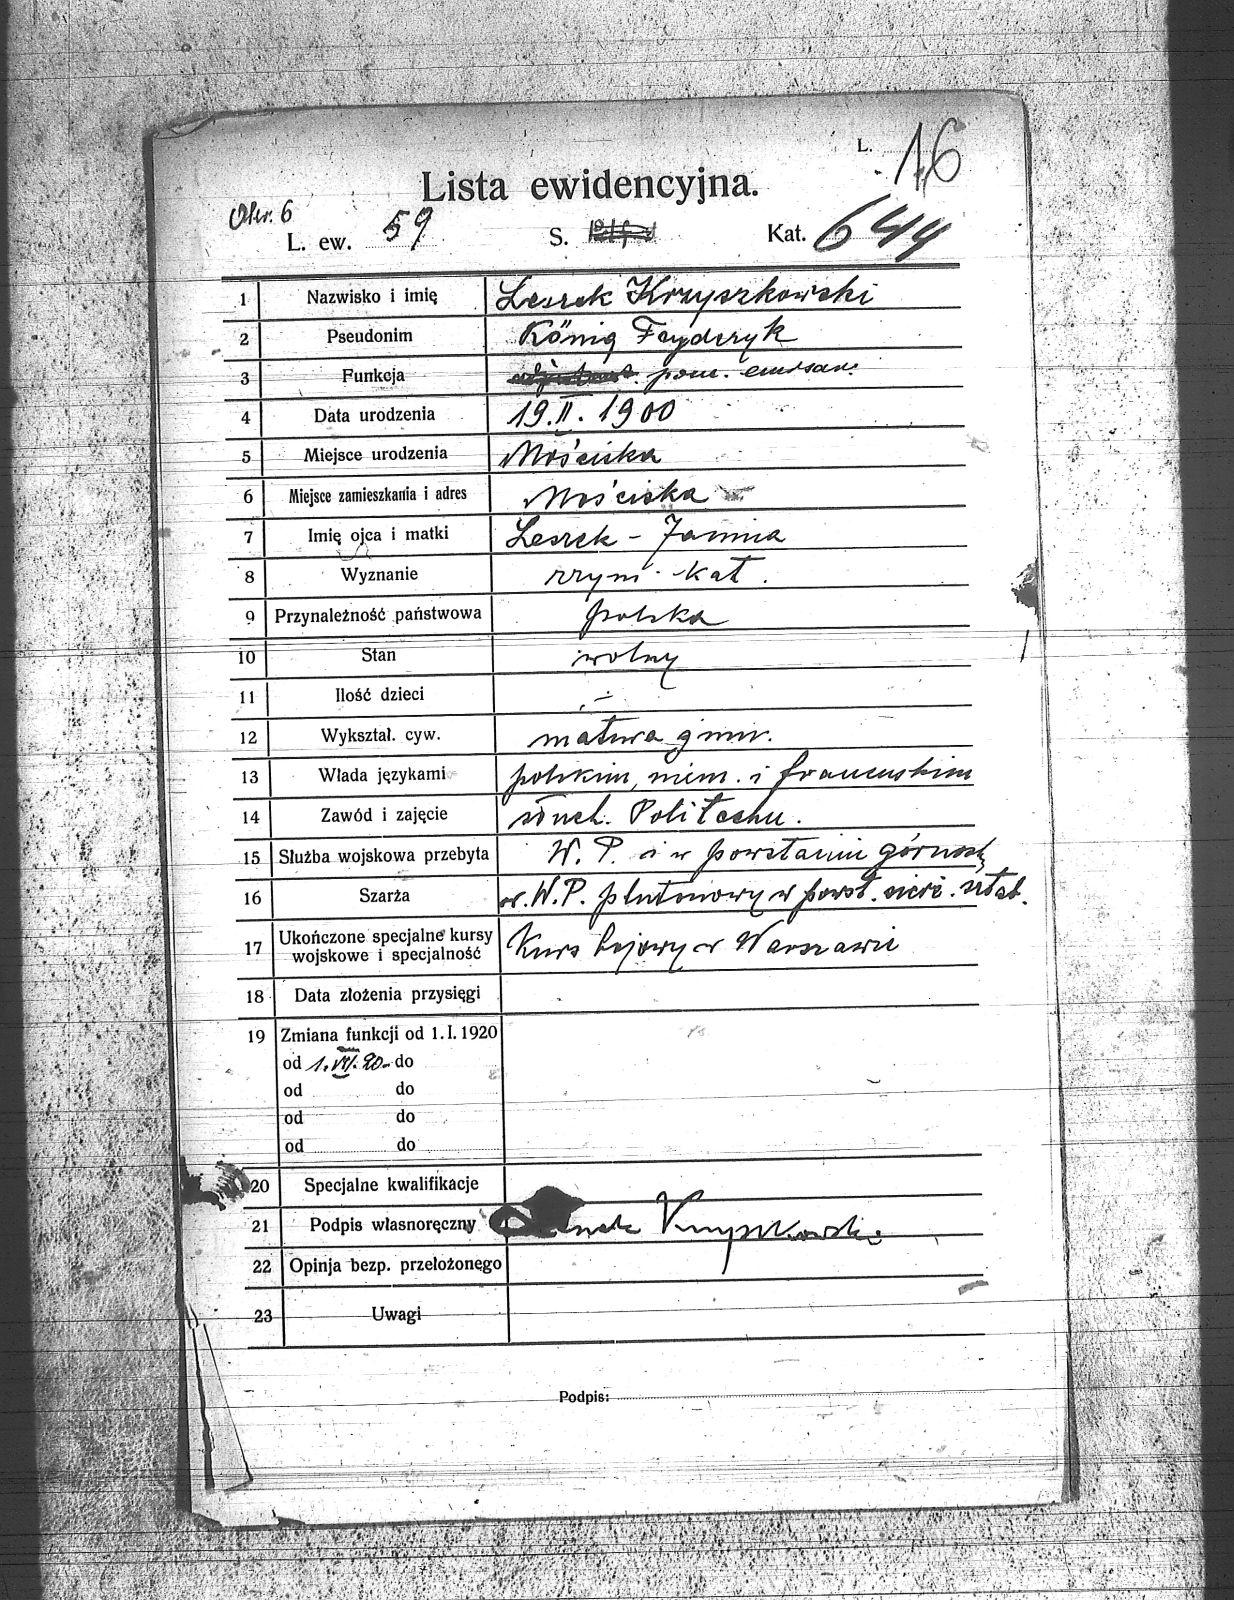 L. 16
Lista ewidencyjna.
Okr. 6
L. ew. 59 S. Kat. 644
1 Nazwisko i imię Leszek Krzyszkowski
2 Pseudonim König Fryderyk
3 Funkcja pom. emisar.
4 Data urodzenia 19.II.1900
5 Miejsce urodzenia Mościska
6 Miejsce zamieszkania i adres Mościska
7 Imię ojca i matki Leszek - Janina
8 Wyznanie rzym. kat.
9 Przynależność państwowa polska
10 Stan wolny
11 Ilość dzieci -
12 Wykształ. cyw. matura gimn.
13 Włada językami polskim, niem. i francuskim
14 Zawód i zajęcie słuch. Politechn.
15 Służba wojskowa przebyta W. P. i w powstaniu górnośl.
16 Szarża w W.P. plutonowy w powst. sierż. sztab.
17 Ukończone specjalne kursy
wojskowe i specjalność Kurs bojowy w Warszawie
18 Data złożenia przysięgi
19 Zmiana funkcji od 1. I. 1920
od 1.VII.20. do
od do
od do
od do
20 Specjalne kwalifikacje
21 Podpis własnoręczny Krzyszkowski
22 Opinja bezp. przełożonego
23 Uwagi
Podpis: